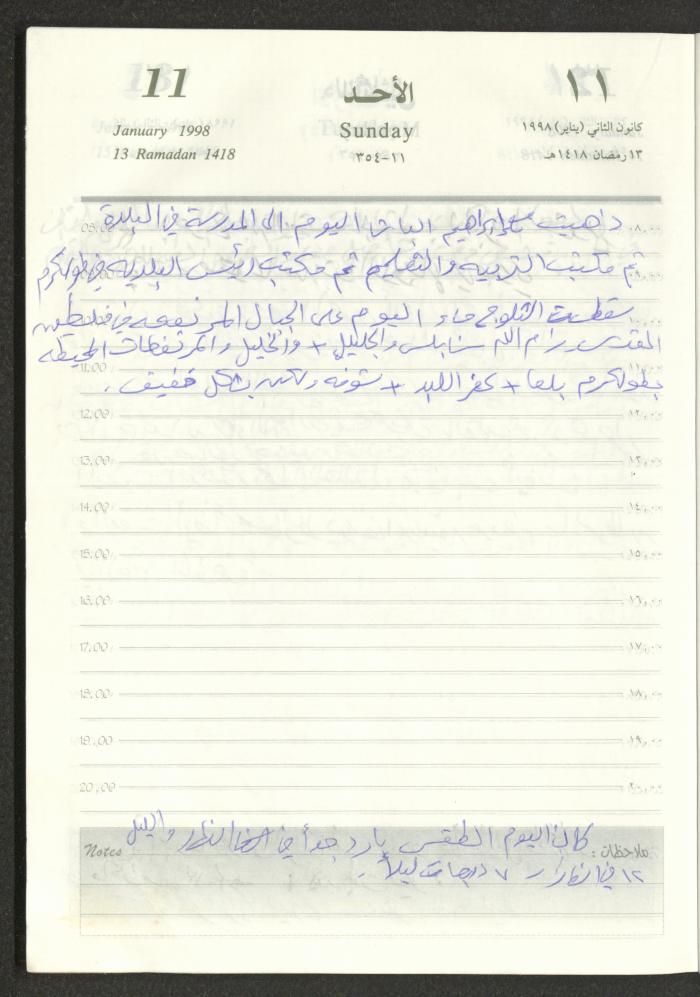 11
الأحد
١١
January 1998
Sunday
كانون الثاني (يناير) ١٩٩٨
13 Ramadan 1418
١١-٣٥٤
١٣ رمضان ١٤١٨هـ
ذاهبت مع ابراهيم الباشا اليوم الى المدرسة في البلدة
08.00
ثم مكتب التربيه والتعليم ثم مكتب رئيس البلديه في طولكرم
سقطت الثلوج مساء اليوم على الجبال المرتفعه في فلسطين
القدس رام الله نابلس والجليل + والخليل والمرتفعات المحيطه
11.00
بطولكرم بلعا + كفر اللبد + شوفه ولكن بشكل خفيف .
12.00
١٢,٠٠
13.00
١٣,٠٠
14.00
١٤,٠٠
15.00
١٥,٠٠
16.00
١٦,٠٠
17.00
١٧,٠٠
18.00
١٨,٠٠
19.00
١٩,٠٠
20.00
٢٠,٠٠
كان اليوم الطقس بارد جداً في النهار والليل
ملاحظات :
Notes
١٢ في النهار - ٧ درجات ليلاً .